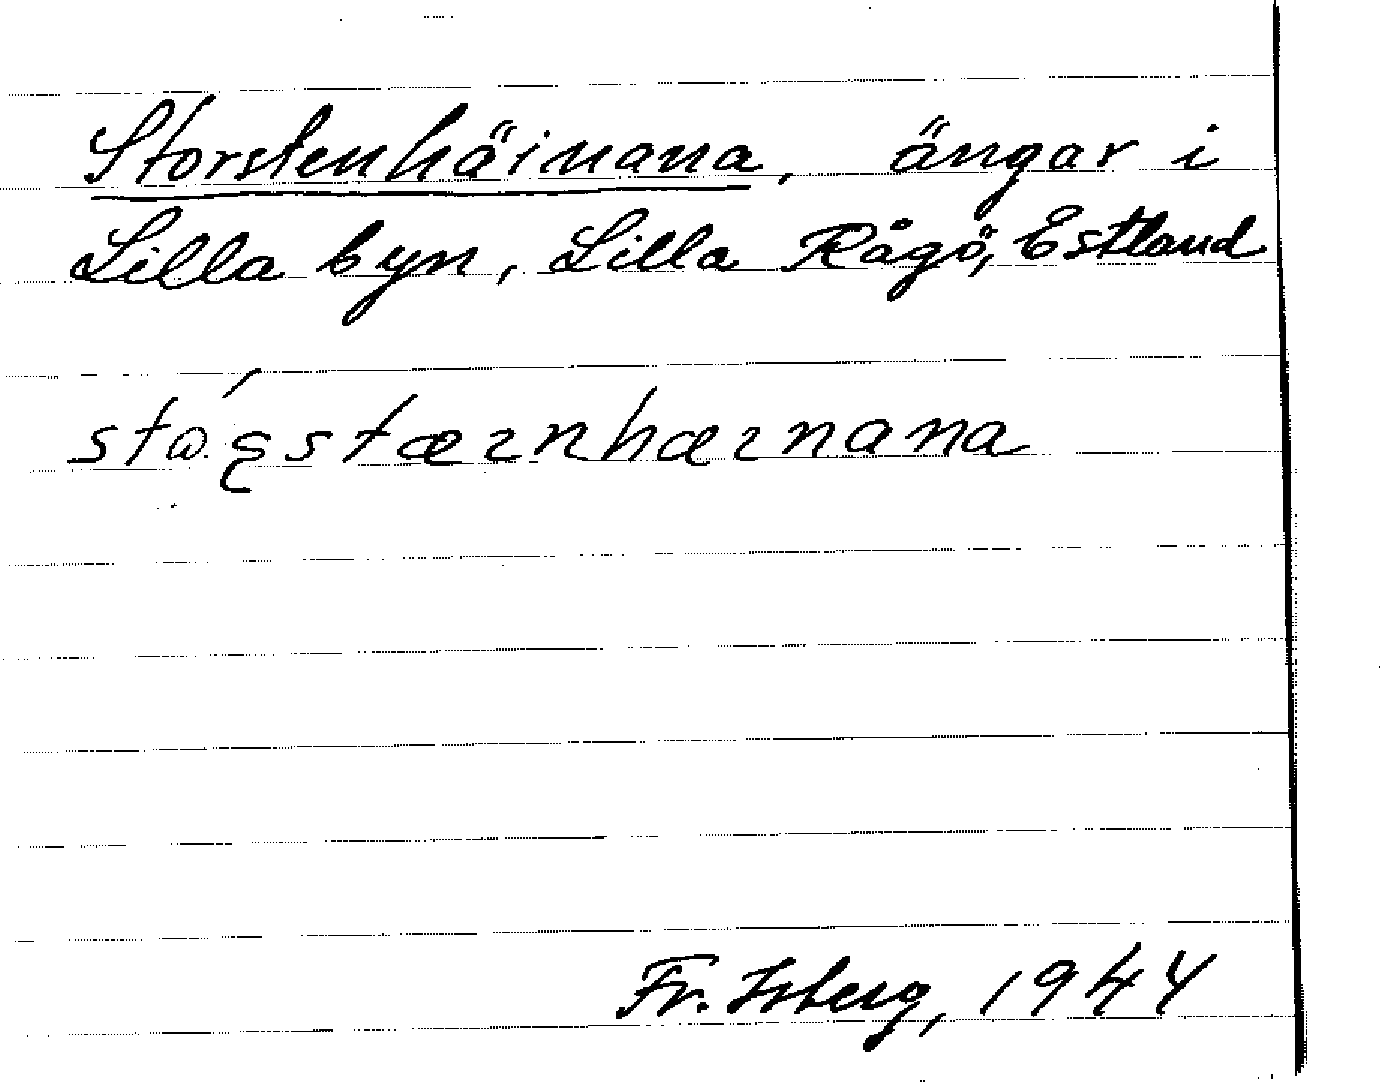 Storstenhäinana, ängar i
Lilla byn, Lilla Rågö, Estland
stꞷ́ꞩstæınhæınana
Fr. Isberg, 1944